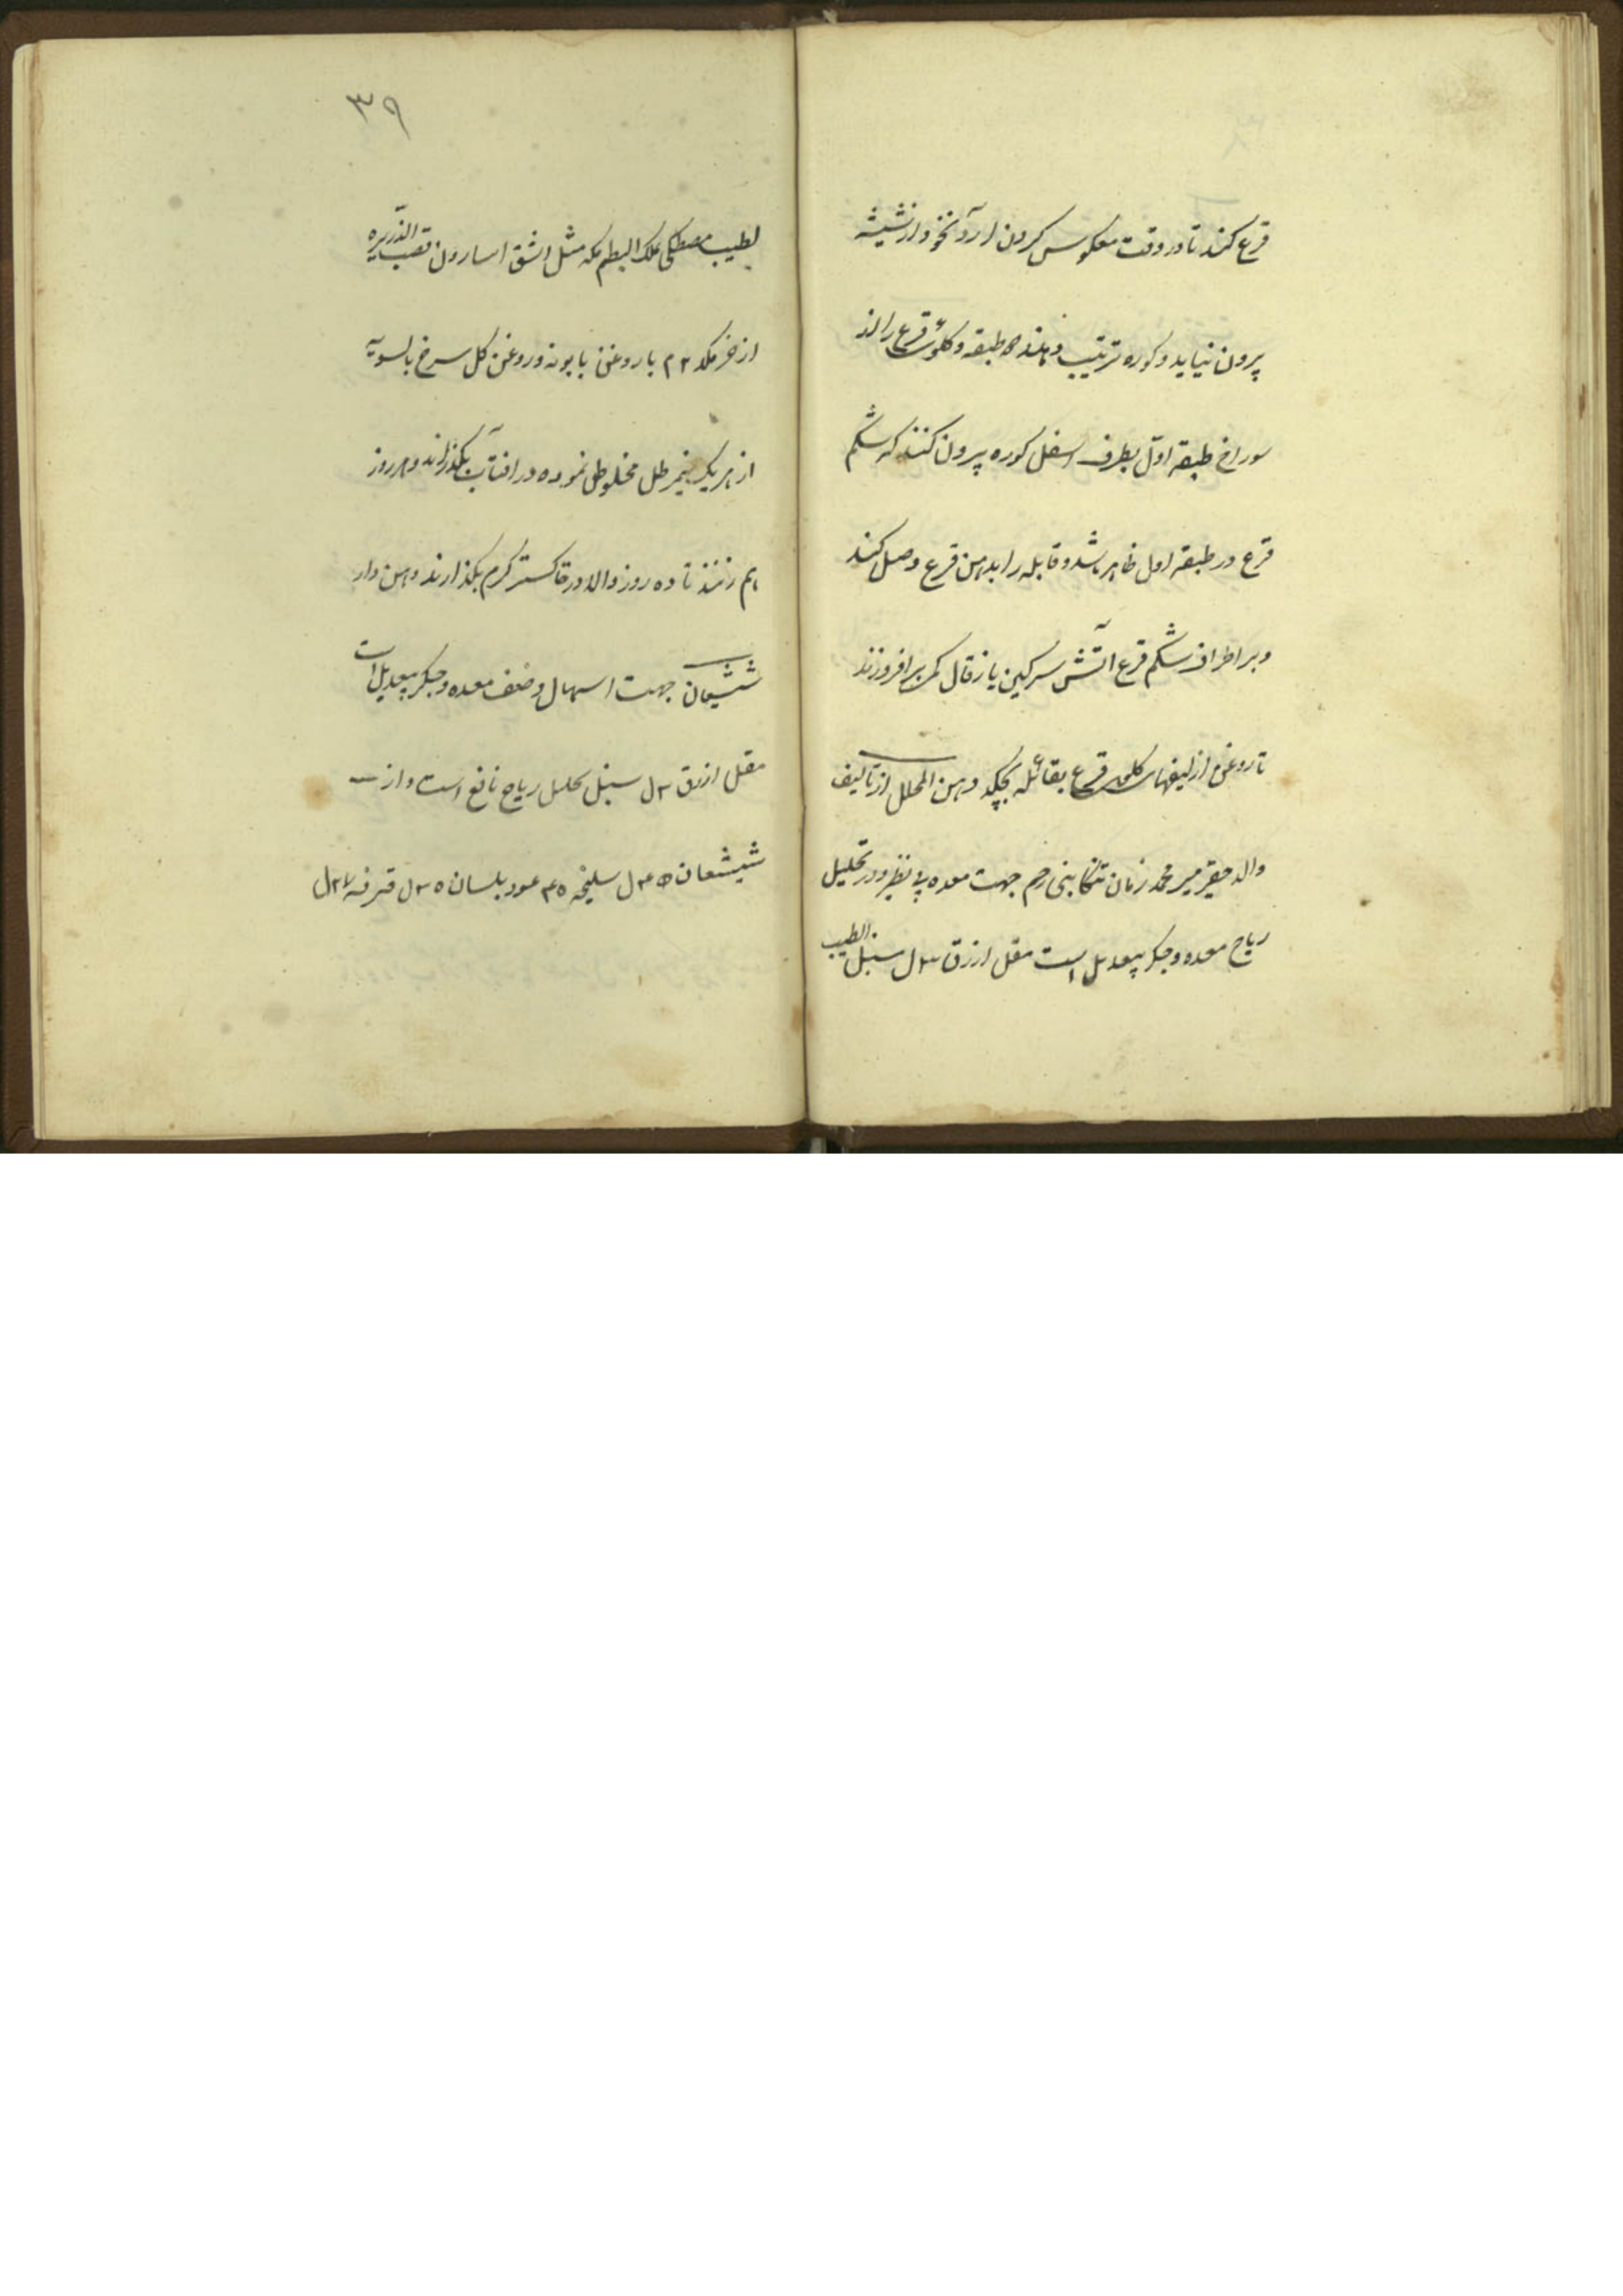 قرع کنند تا در وقت معکوس کردن آرد نخود از شیشه
بیرون نیاید و کوره ترتیب دهند طبقه و کلوی قرع را از
سوراخ طبقه اوّل بطرف اسفل کوره بیرون کنند که شکم
قرع در طبقه اول ظاهر باشد و قابله را بدهن قرع وصل کنند
و بر اطراف شکم قرع آتش سرکین یا زقال کم برافروزند
تا روغن از لیفهای کلوی قرع بقابله بچکد دهن المحلل از تالیف
والد حقیر میر محمد زمان تنکابنی رحم جهت معده بی نظیر و در تحلیل
ریاح معده و جکر بیعدیل است مقل ازرق ۳ل سنبل الطیب
۳۹
لطیب مصطکی علک البطم مکه مثل اشق اسارون قصب الذریره
اذخر مکد ۲م با روغن بابونه و روغن کل سرخ بالسویه
از هر یک نیم رطل مخلوط نموده در افتاب بکذرانند و هر روز
بهم زنند تا ده روز والا در خاکستر کرم بکذارند دهن دار
شیشعان جهت اسهال و ضعف معده و جکر بیعدیل است
مقل ازرق ۳ل سنبل تحلیل ریاح نافع است و از
شیشعان ۳۵ل سلیخه ۳۵ عود بلسان ۳۵ل قرفه ۲۷ل